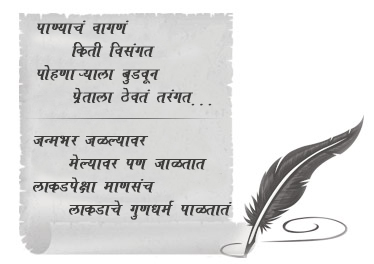 पाण्याचं वागणं
किती विसंगत
पोहणाऱ्याला बुडवून
प्रेताला ठेवतं तरंगत...
जन्मभर जळल्यावर
मेल्यावर पण जाळतात
लाकडपेक्षा माणसंच
लाकडाचे गुणधर्म पाळतातं